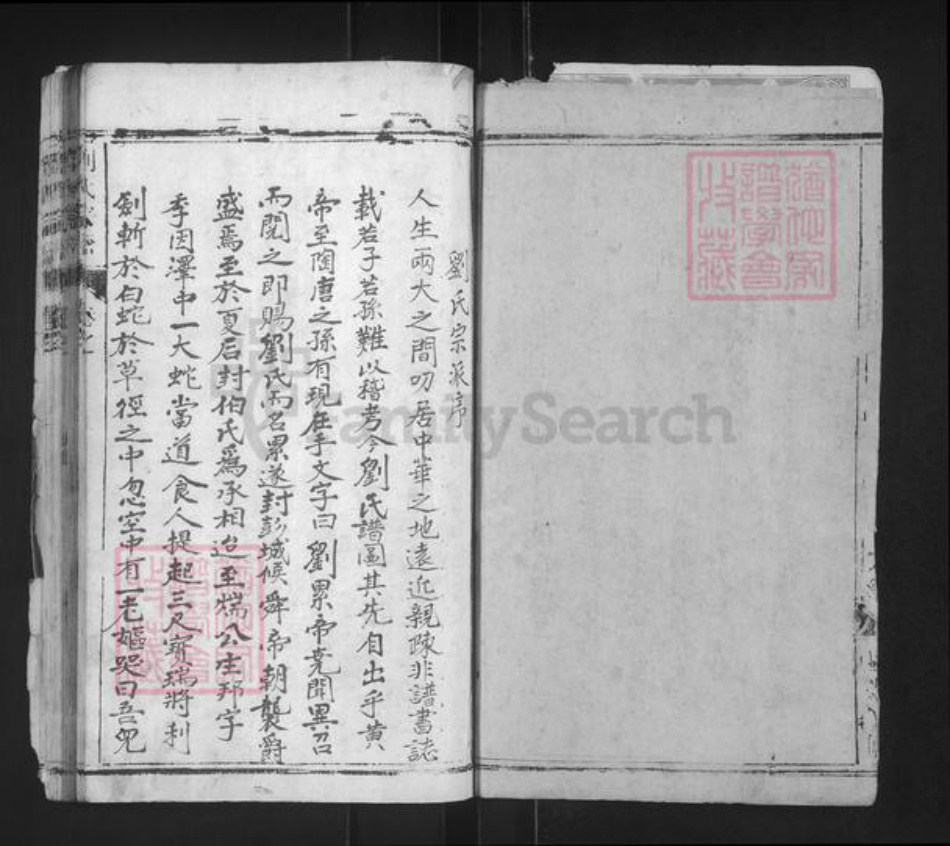 劉氏宗派序
人生兩大之間叨居中華之地遠近親疎非譜書誌
載若子若孫難以稽考今劉氏譜圖其先自出乎黃
帝至陶唐之孫有現在手文字曰劉累帝堯聞異召
而閱之即賜劉氏而名累遂封彭城候舜帝朝襲爵
盛焉至於夏后封伯氏爲承相迨至煓公生邦字
季因澤中一大蛇當道食人提起三尺寶瑞將利
劍斬於白蛇於草徑之中忽空中有一老嫗哭曰吾兒
劉氏宗譜
FamilySearch